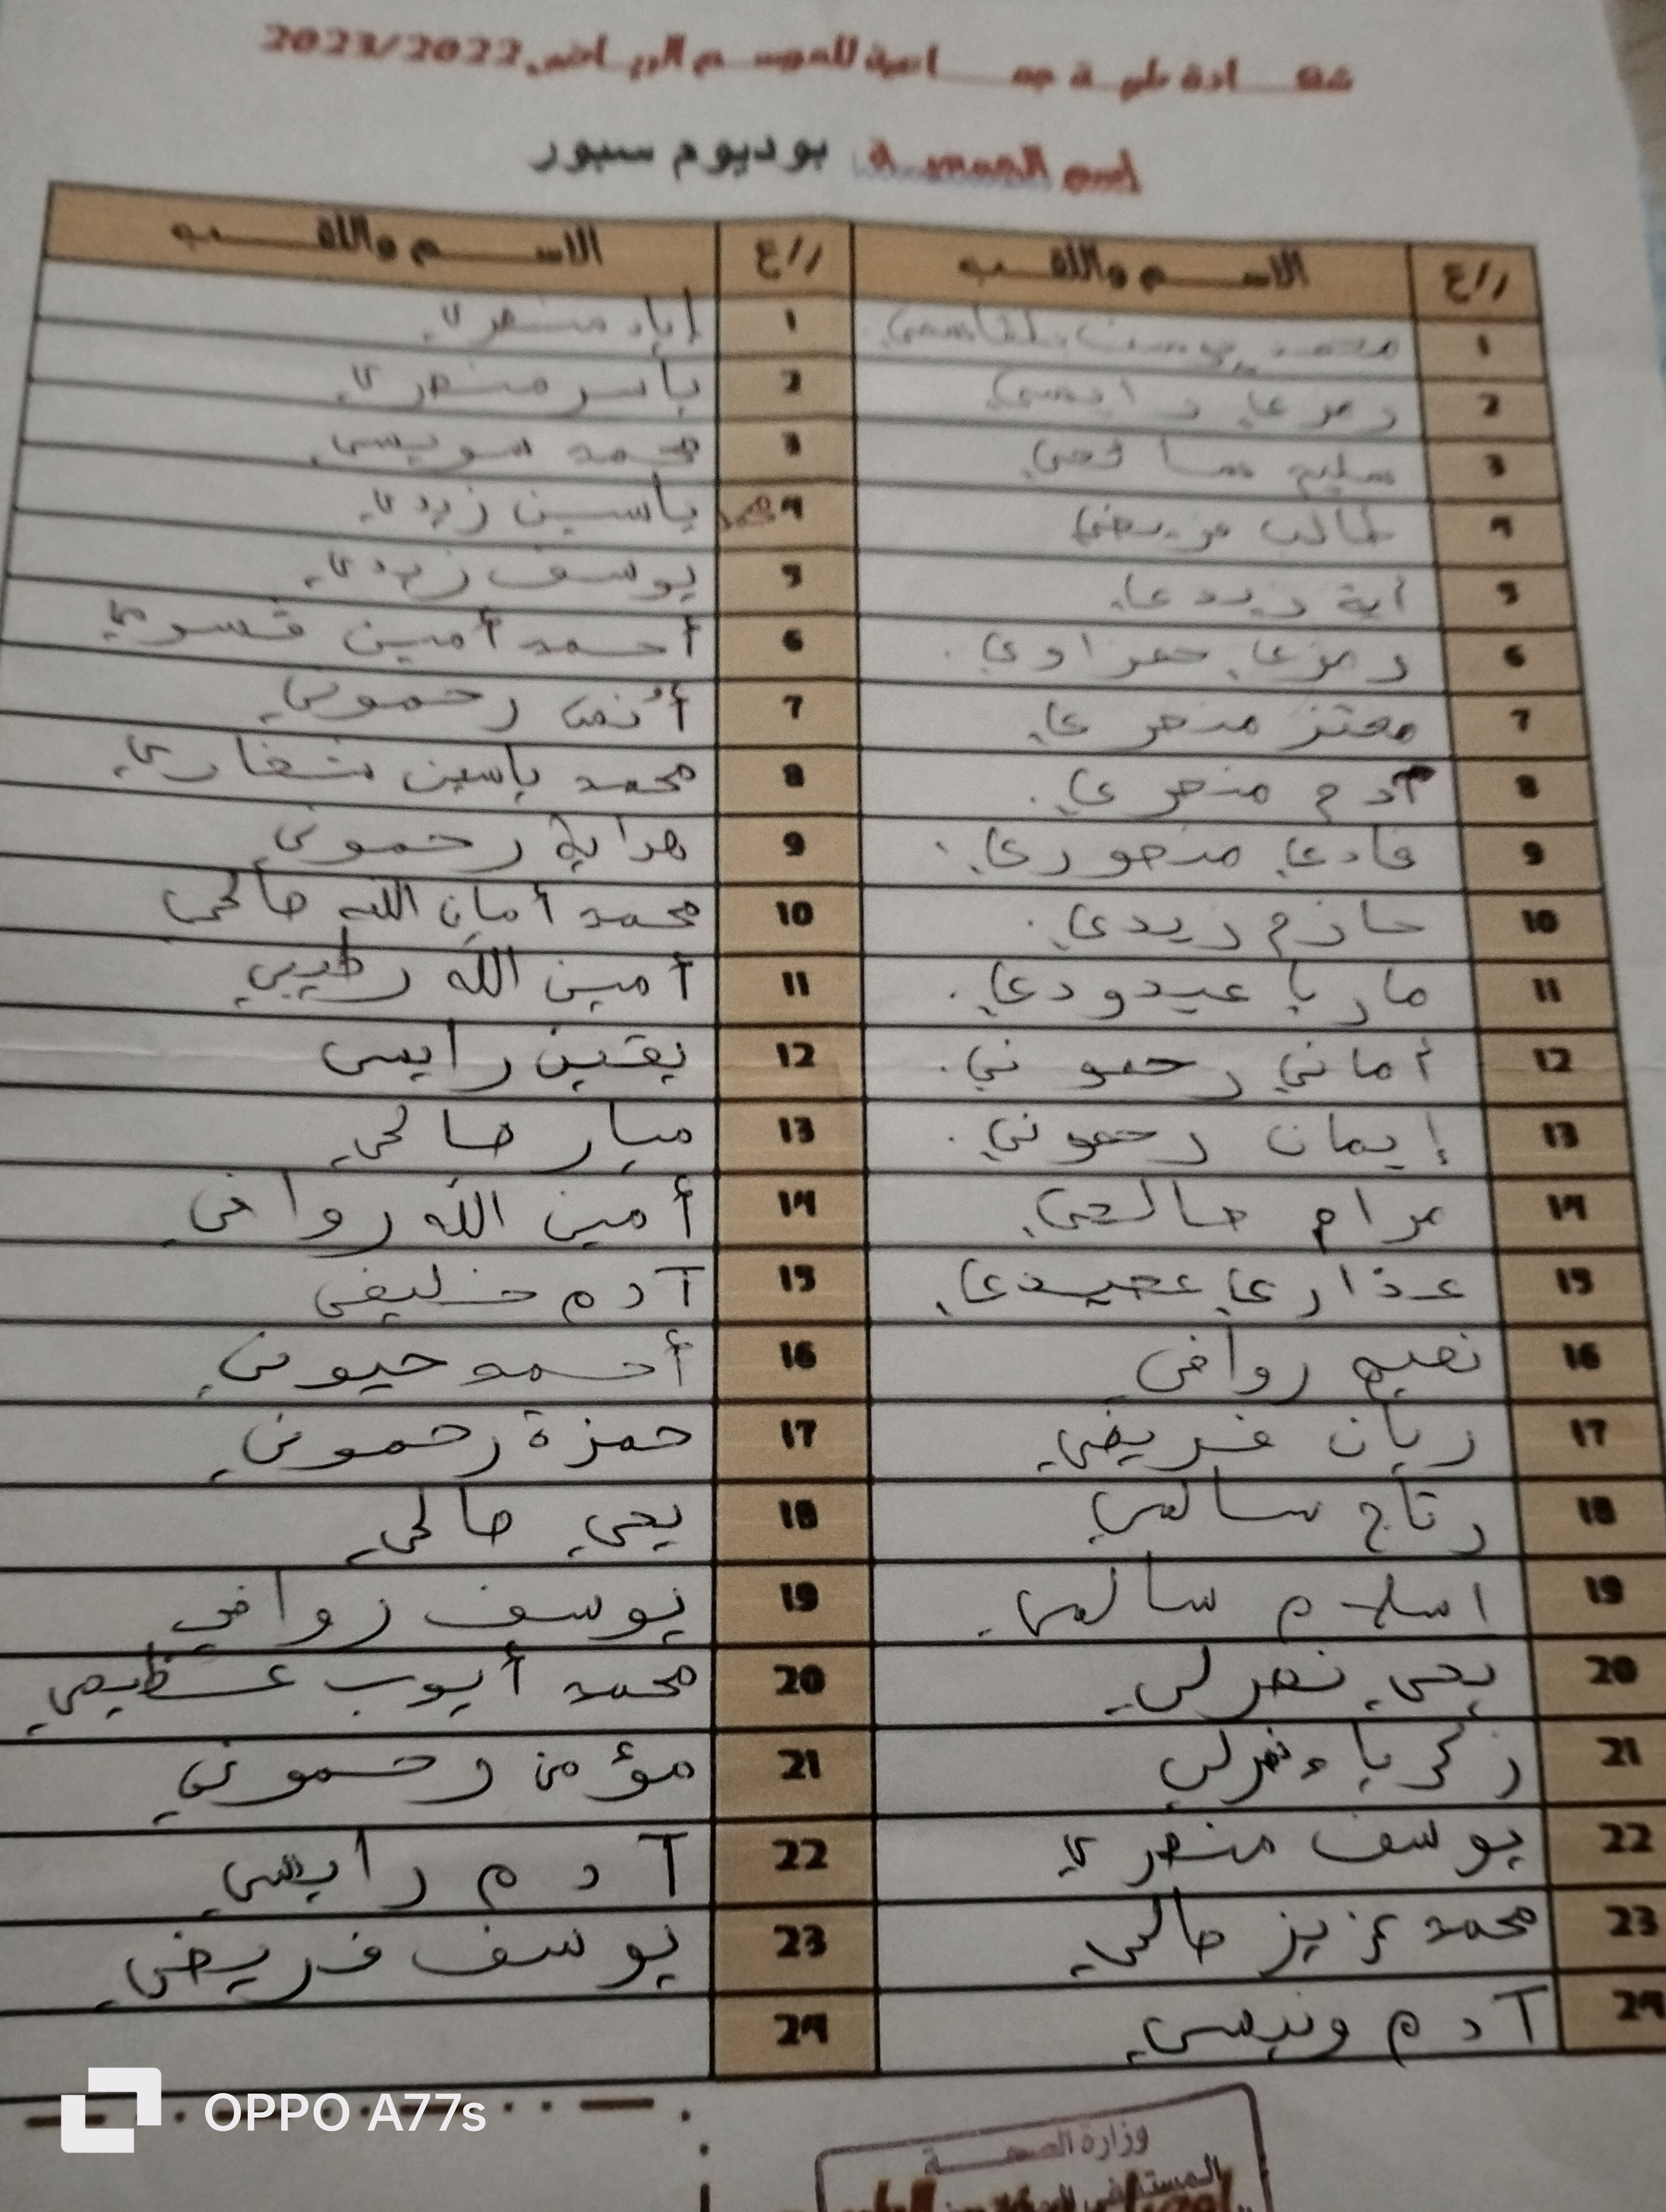 شهـــادة طبيـــة جمـــاعية للموســـم الرياضي 2023/2022
اسم الجمعيـــة: بوديوم سبور
ع/ر الاســـم واللقـــب ع/ر الاســـم واللقـــب
1 محمد يوسف بلقاسمي 1 إياد منصري
2 رمزي رايسي 2 ياسر منصري
3 سليم 3 محمد سويسي
4 طالب فريضي 4 محمد ياسين زيدي
5 آية زيدي 5 يوسف زيدي
6 رمزي 6 أحمد أمين قسومي
7 معتز منصري 7 أنس رحموني
8 آدم منصري 8 محمد ياسين
9 فادي منصوري 9 هداية رحموني
10 حازم زيدي 10 محمد أمان الله صالحي
11 ماريا عبدودي 11 أمين الله رطيبي
12 أماني رحموني 12 يقين رايسي
13 إيمان رحموني 13 ميار صالحي
14 مرام صالحي 14 أمين الله روافي
15 عذاري عبيدي 15 آدم خليفي
16 نعيم روافي 16 أحمد حيوني
17 ريان فريضي 17 حمزة رحموني
18 رتاج سالمي 18 يحي صالحي
19 اسلام سالمي 19 يوسف روافي
20 يحي نصرلي 20 محمد أيوب عظيمي
21 زكرياء نصرلي 21 مؤمن رحموني
22 يوسف منصري 22 آدم رايسي
23 محمد عزيز صالحي 23 يوسف فريضي
24 آدم ونيسي 24
وزارة الصحـــة
المستشفى
OPPO A77s